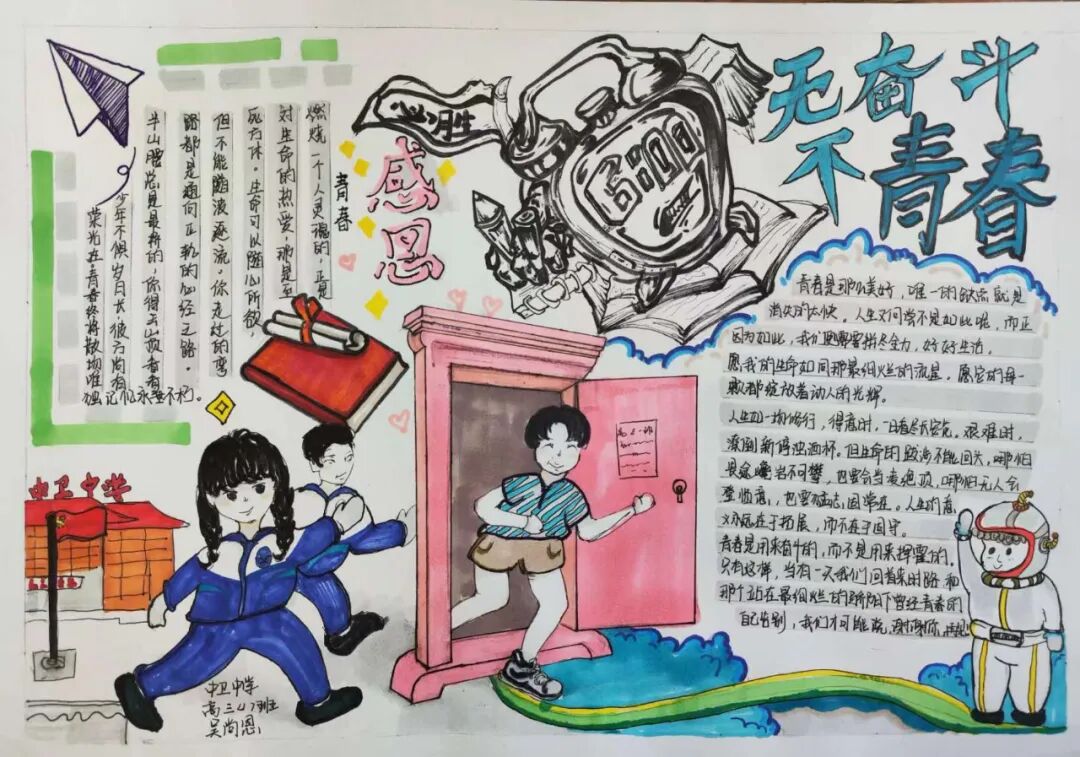 无奋斗
不青春
必胜
6:00
感恩
青春
燃烧一个人灵魂的，正是
对生命的热爱，那是至
死方休。生命可以随心所欲
但不能随波逐流。你走过的弯
路都是通向正轨的必经之路。
半山腰总是最挤的，你得去山顶看看
少年不惧岁月长，彼方尚有
荣光在。青春终将散场，唯
独记忆永垂不朽。
青春是那么美好，唯一的缺点就是
消失的太快。人生又何尝不是如此呢，而正
因为如此，我们更需要拼尽全力，好好生活。
愿我的生命如同那最绚烂的流星，愿它的每一
瞬都绽放着动人的光辉。
人生如一场修行，得意时，一日看尽长安花。艰难时，
潦倒新停浊酒杯。但生命的跋涉不能回头，哪怕
畏途巉岩不可攀，也要会当凌绝顶，哪怕无人会
登临意，也要猛志固常在。人生的意
义永远在于拓展，而不在于固守。
青春是用来奋斗的，而不是用来挥霍的。
只有这样，当有一天我们回首来时路 和
那个站在最绚烂的骄阳下曾经青春的
自己告别，我们才可能说，谢谢你，再见
中卫中学
中卫中学
高三
班
吴尚恩